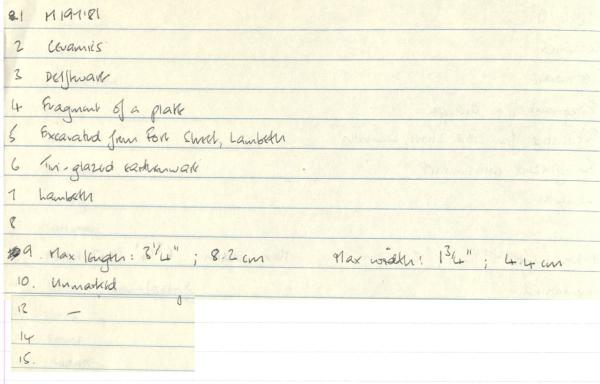 1 M197'81
2 Ceramics
3 Delftware
4 Fragment of a plate
5 Excavated from Fort Street, Lambeth
6 Tin-glazed earthenware
7 Lambeth
8
9. Max length: 3 1/4" ; 8.2 cm Max width: 1 3/4" ; 4.4 cm
10. Unmarked
12 —
14
15.